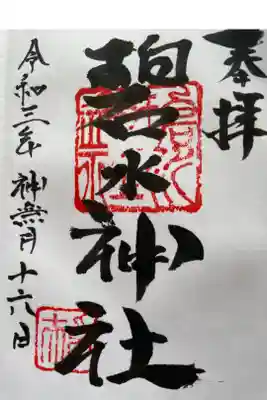 奉拝
碧水神社
令和三年 神無月 十六日